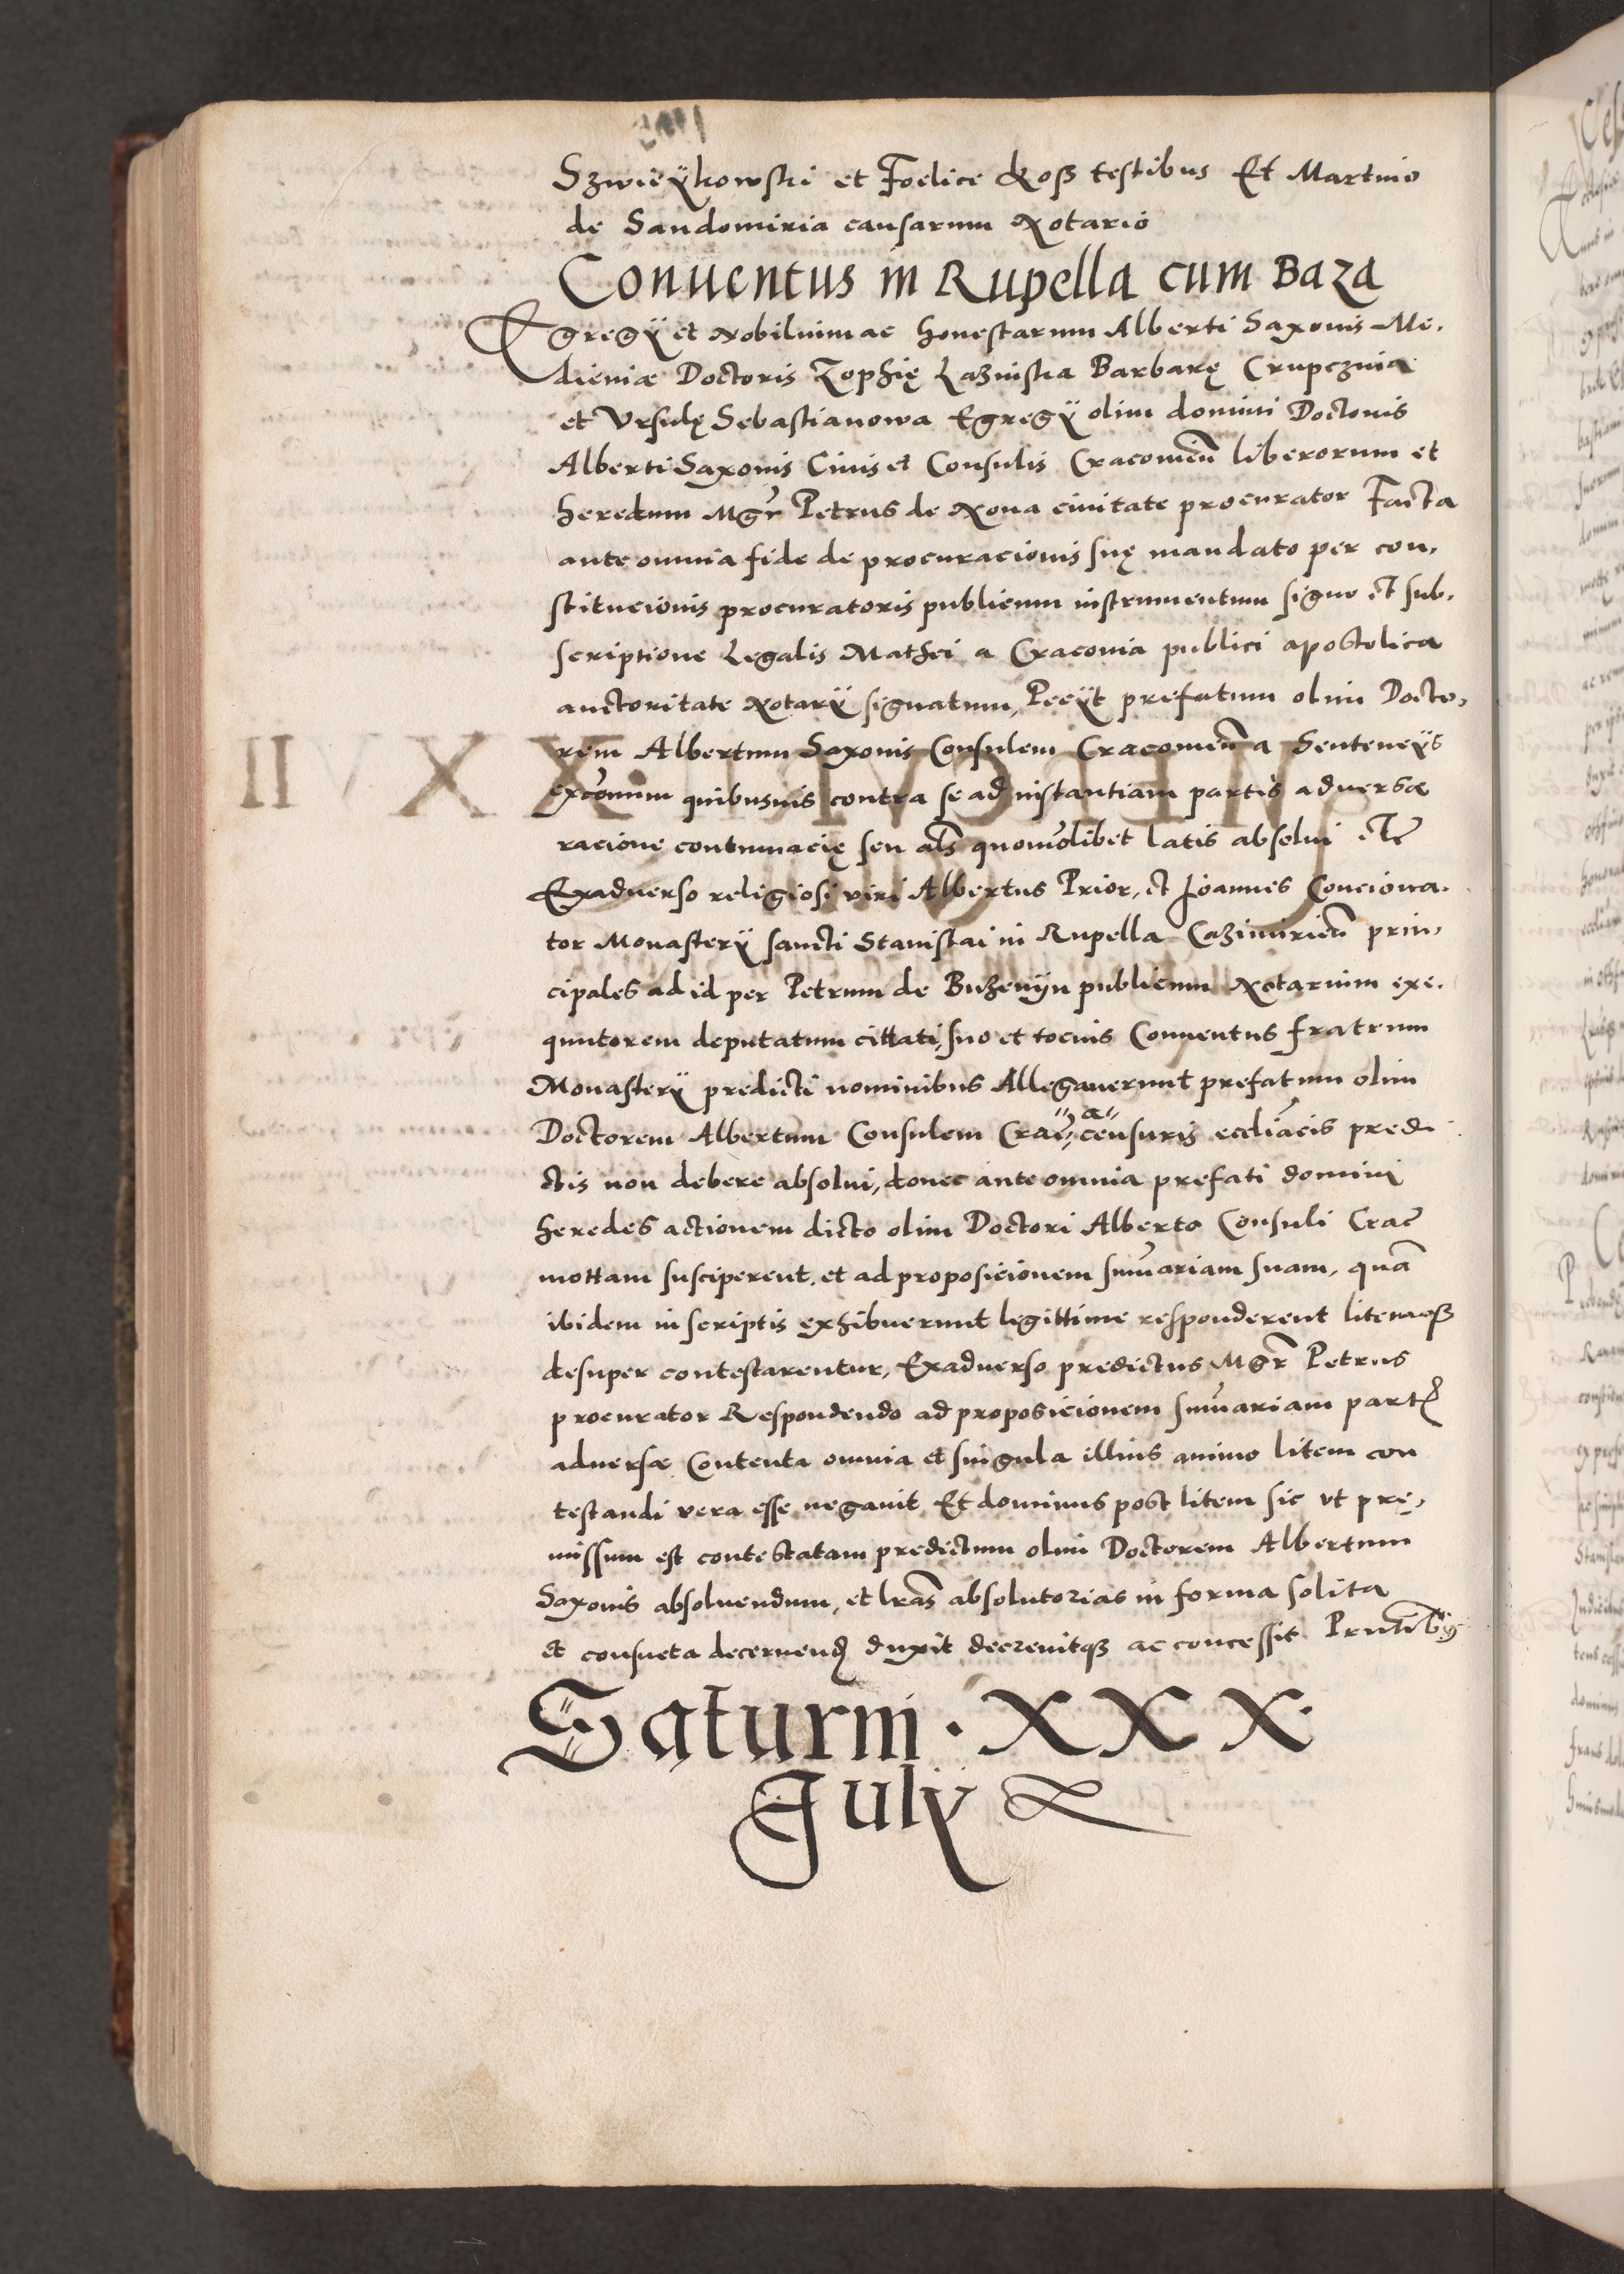 Szwieÿkowski et Foelice Koß testibus Et Martino
de Sandomiria causarum Notario
Conuentus in Rupella cum Baza
Egregÿ et Nobilium ac honestarum Alberti Saxonis Me.
dicinæ Doctoris Zophię Łaznistka Barbarę Crupcznia
et Vrsulę Sebastianowa Egregÿ olim domini Doctoris
Alberti Saxonis Ciuis et Consulis Cracouień liberorum et
heredum Mgr̃ Petrus de Noua ciuitate procurator Facta
ante omnia fide de procuracionis suę mandato per con,
stitucionis procuratoris publicum instrumentum signo et sub,
scriptione Legalis Mathei a Cracouia publici apostolica
auctoritate Notarÿ signatum, Pecÿt prefatum olim Docto,
rem Albertum Saxonis Consulem Cracouień a Sentencÿs
excõmum quibusuis contra se ad instantiam partis aduersæ
racione contumacię seu als quomõlibet latis absolui etc̃
Exaduerso religiosi viri Albertus Prior, et Joannes Conciona.
tor Monasterÿ sancti Stanislai in Rupella Cazimirień prin,
cipales ad id per Petrum de Buzenÿn publicum Notarium exe.
quutorem deputatum cittati, suo et tocius Conuentus fratrum
Monasterÿ predicti nominibus Allegauerunt prefatum olim
Doctorem Albertum Consulem Crac̃ a censuris eccliacis predi
ctis non debere absolui, donec ante omnia prefati domini
heredes actionem dicto olim Doctori Alberto Consuli Crac̃
mottam susciperent, et ad proposicionem sum̃ariam suam, quã
ibidem in scriptis exhibuerunt legittime responderent litemqȝ
desuper contestarentur, Exaduerso predictus Mgr̃ Petrus
procurator Respondendo ad proposicionem sum̃ariam partꝭ
aduersæ Contenta omnia et singula illius animo litem con
testandi vera esse negauit Et dominus post litem sic vt prę,
missum est contestatam predictum olim Doctorem Albertum
Saxonis absoluendum, et lr̃as absolutorias in forma solita
et consueta decernend duxit decreuitqȝ ac concessit Pr̃ntibus
Saturni · XXX ·
Julÿ